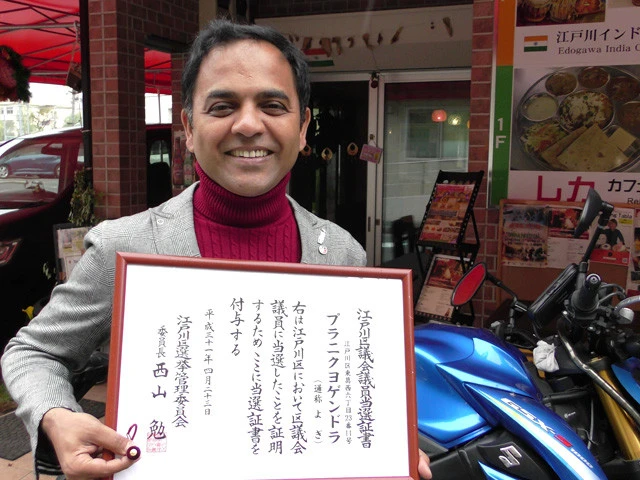 江戸川区議会議員当選証書
江戸川区東葛西六丁目23番11号
プラニクヨゲンドラ
(通称 よぎ)
右は江戸川区において区議会
議員に当選したことを証明
するため ここに当選証書を
付与する
平成三十一年四月二十三日
江戸川区選挙管理委員会
委員長 西山 勉
江戸川インド
Edogawa India C
1F
レカ カフ
GSX-S